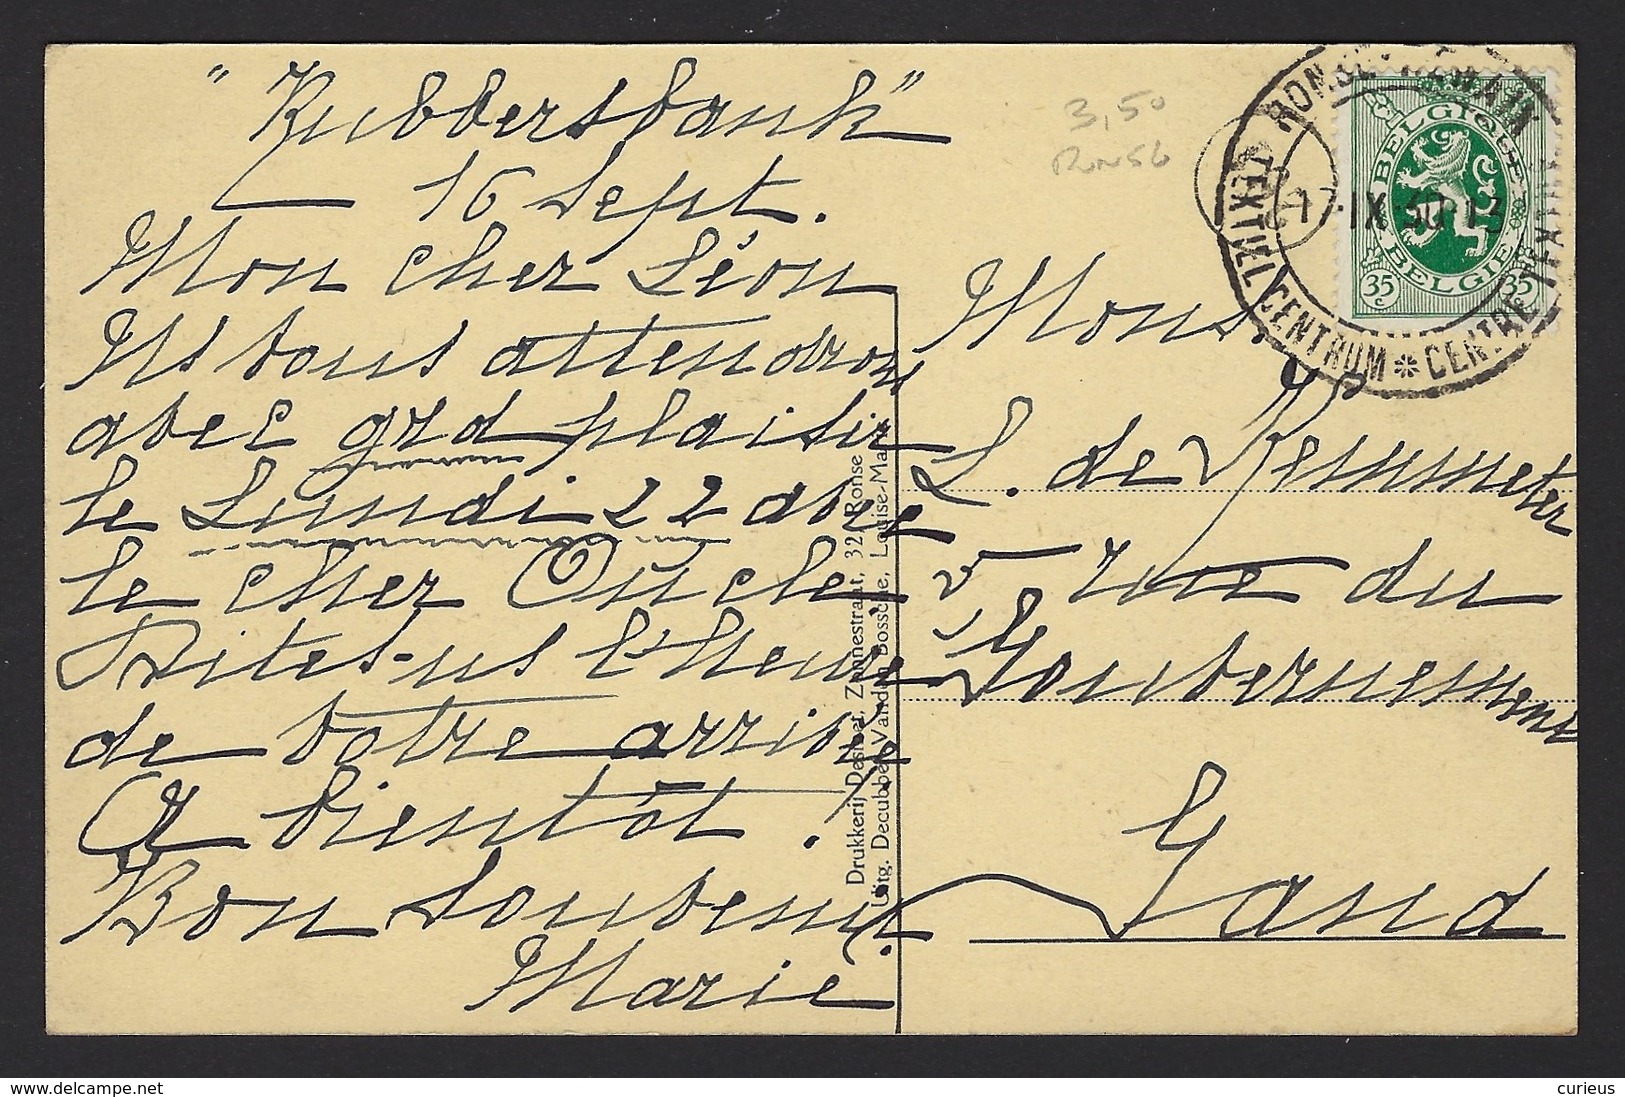 "Kubbersbank"
16 Sept.
Mon cher Léon
Ns vous attendrons
avec grd plaisir
le Lundi 22 avec
le cher Oncle.
Dites-ns l'heure
de votre arrivée
A bientôt.
Bon souvenir.
Marie
3,50
RONSE-RENAIX
TEXTIEL CENTRUM * CENTRE TEXTILE
17-IX 30 13
BELGIQUE
BELGIE
35 c
35 c
Mons.
L. de Kemmeter
5, rue du
Gouvernement
Gand
Drukkerij Desloer, Zonnestraat, 32, Ronse
Uitg. Decubber-Vanden Bossche, Louise-Marie
curieus
delcampe.net